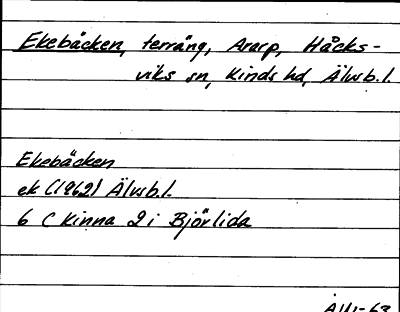 Ekebäcken, terräng, Ararp, Håcks-
viks sn, Kinds hd, Älvsb.l.
Ekebäcken
ek (1962) Älvsb.l.
6 C Kinna 2 i Björlida